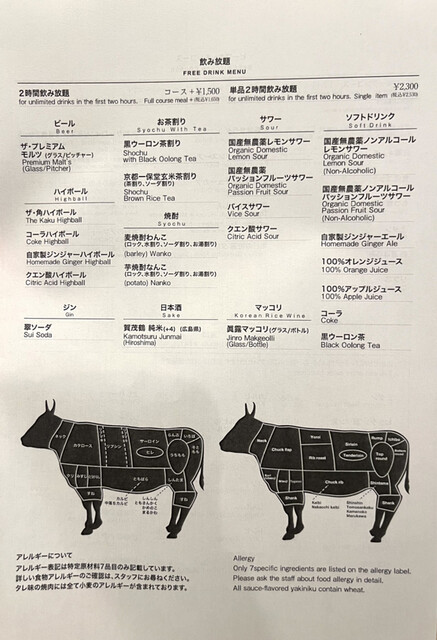 飲み放題
FREE DRINK MENU
2時間飲み放題 コース+¥1,500
for unlimited drinks in the first two hours. Full course meal + (税込¥1,650)
単品2時間飲み放題 ¥2,300
for unlimited drinks in the first two hours. Single item (税込¥2,530)
ビール
Beer
ザ・プレミアム
モルツ (グラス/ピッチャー)
Premium Malt's
(Glass/Pitcher)
ハイボール
Highball
ザ・角ハイボール
The Kaku Highball
コーラハイボール
Coke Highball
自家製ジンジャーハイボール
Homemade Ginger Highball
クエン酸ハイボール
Citric Acid Highball
ジン
Gin
翠ソーダ
Sui Soda
お茶割り
Syochu With Tea
黒ウーロン茶割り
Shochu
with Black Oolong Tea
京都一保堂玄米茶割り
(茶割り、ソーダ割り)
Shochu
Brown Rice Tea
焼酎
Syochu
麦焼酎わんこ
(ロック、水割り、ソーダ割り、お湯割り)
(barley) Wanko
芋焼酎なんこ
(ロック、水割り、ソーダ割り、お湯割り)
(potato) Nanko
日本酒
Sake
賀茂鶴 純米(+4) (広島県)
Kamotsuru Junmai
(Hiroshima)
サワー
Sour
国産無農薬レモンサワー
Organic Domestic
Lemon Sour
国産無農薬
パッションフルーツサワー
Organic Domestic
Passion Fruit Sour
バイスサワー
Vice Sour
クエン酸サワー
Citric Acid Sour
マッコリ
Korean Rice Wine
眞露マッコリ(グラス/ボトル)
Jinro Makgeolli
(Glass/Bottle)
ソフトドリンク
Soft Drink
国産無農薬ノンアルコール
レモンサワー
Organic Domestic
Lemon Sour
(Non-Alcoholic)
国産無農薬ノンアルコール
パッションフルーツサワー
Organic Domestic
Passion Fruit Sour
(Non-Alcoholic)
自家製ジンジャーエール
Homemade Ginger Ale
100%オレンジジュース
100% Orange Juice
100%アップルジュース
100% Apple Juice
コーラ
Coke
黒ウーロン茶
Black Oolong Tea
ネック
カタロース
リブシン
サーロイン
ヒレ
らんぷ
いちぼ
うちもも
ともばら
しんたま
すね
すね
カルビ
中落ちカルビ
しんしん
ともさんかく
かめのこ
まるかわ
Neck
Chuck flap
Roast
Rib roast
Sirloin
Tenderloin
Rump
Top round
Chuck rib
Shank
Shank
Kalbi
Nakaochi kalbi
Shinshin
Tomosankaku
Kamenoko
Marukawa
アレルギーについて
アレルギー表記は特定原材料7品目のみ記載しています。
詳しい食物アレルギーのご確認は、スタッフにお尋ねください。
タレ味の焼肉には全て小麦のアレルギーが含まれております。
Allergy
Only 7specific ingredients are listed on the allergy label.
Please ask the staff about food allergy in detail.
All sauce-flavored yakiniku contain wheat.